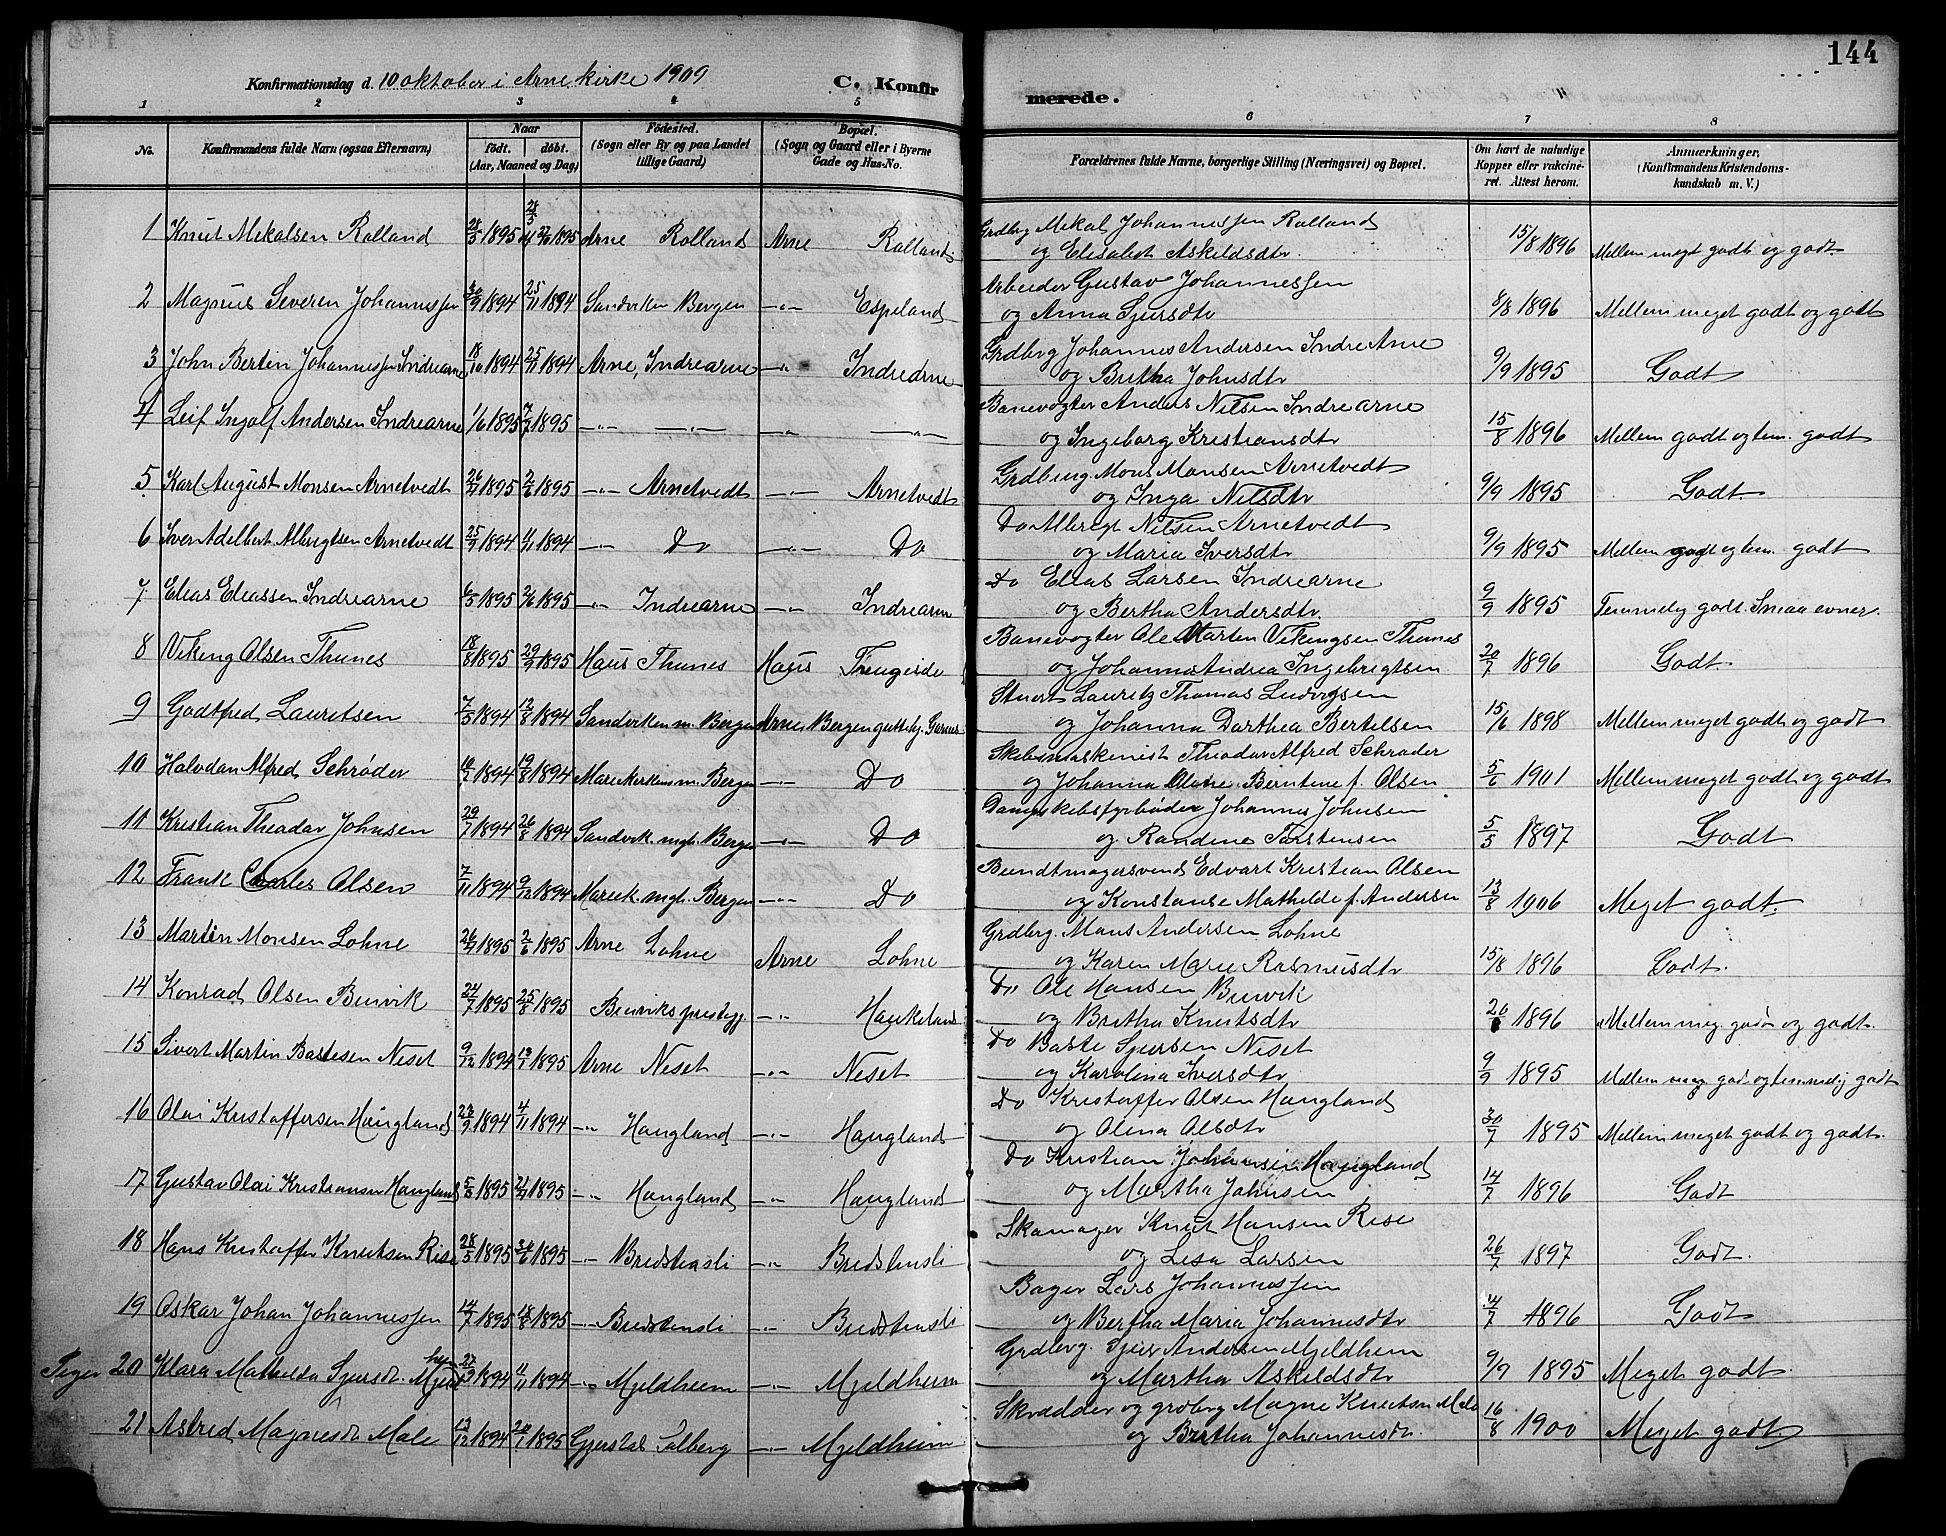 144
Konfirmationsdag d. 10 oktober i Arne kirke 1909
C. Konfirmerede.
1 2 3 4 5 6 7 8
No.
Konfirmandens fulde Navn (ogsaa Efternavn)
Naar
födt. döbt.
(Aar, Maaned og Dag)
Födested.
(Sogn eller By og paa Landet tillige Gaard)
Bopæl.
(Sogn og Gaard eller i Byerne Gade og Hus-No.
Forældrenes fulde Navne, borgerlige Stilling (Næringsvei) og Bopæl.
Om havt de naturlige Kopper eller vakcineret. Attest herom.
Anmærkninger,
(Konfirmandens Kristendomskundskab m. V.)
1 Knut Mekalsen Rolland 1895 1895 Arne Rolland Arne Rolland Grdbrg Mekal Johannessen Rolland 15/8 1896 Mellem meget godt og godt.
og Elisabet Askildsdtr
2 Magnus Severin Johannessen 30/9 1894 25/11 1894 Sandviken Bergen -"- Espeland Arbeider Gustav Johannessen 8/8 1896 Mellem meget godt og godt
og Anna Sjursdtr
3 John Bertin Johannessen Indrearne 18/10 1894 25/11 1894 Arne, Indrearne -"- Indrearne Grdbrg Johannes Andersen Indre Arne 9/9 1895 Godt
og Britha Johnsdtr
4 Leif Ingolf Andersen Indrearne 1/6 1895 7/7 1895 -"- -"- -"- -"- Banevogter Anders Nilsen Indrearne 15/8 1896 Mellem godt og tem. godt
og Ingeborg Kristiansdtr
5 Karl August Monsen Arnetvedt 26/4 1895 2/6 1895 -"- Arnetvedt -"- Arnetvedt Grdbrug Mons Monsen Arnetvedt 9/9 1895 Godt
og Inga Nilsdtr
6 Iver Adelbert Albrigtsen Arnetvedt 25/9 1894 1894 -"- Do -"- Do Do Albrigt Nilsen Arnetvedt 9/9 1895 Mellem godt og tem. godt
og Maria Iversdtr
7 Elias Eliassen Indrearne 6/5 1895 2/6 1895 -"- Indrearne -"- Indrearne Do Elias Larsen Indrearne 9/9 1895 Temmelig godt. Smaa evner.
og Bertha Andersdtr.
8 Viking Olsen Thunes 18/8 1895 29/9 1895 Haus Thunes Haus Trengeide Banevogter Ole Martin Vikingsen Thunes 20/7 1896 Godt.
og Johanna Andrea Ingebrigtsen
9 Godtfred Lauritsen 7/5 1894 12/8 1894 Sandviken m. Bergen Arne Bergen guttehj. Garnes Stuert Lauritz Thomas Ludvigsen 15/6 1898 Mellem meget godt og godt
og Johanna Darthea Bertelsen
10 Halvdan Alfred Schrøder 1894 19/8 1894 Mariekirken m. Bergen -"- Do Skibsmaskinist Theodor Alfred Schrøder 5/6 1901 Mellem meget godt og godt
og Johanna Berntine f. Olsen
11 Kristian Theodor Johnsen 29/7 1894 26/8 1894 Sandvik. mgh. Bergen -"- Do Dampskibsfyrbøder Johannes Johnsen 5/5 1897 Godt
og Randine Torstensen
12 Frank Charles Olsen 7/11 1894 9/12 1894 Mariek. mgh. Bergen -"- Do Bundtmagersvend Edvart Kristian Olsen 13/8 1906 Meget godt.
og Konstanse Mathilde f. Andersen
13 Martin Monsen Lohne 26/4 1895 2/6 1895 Arne Lohne Arne Lohne Grdbrg. Mons Andersen Lohne 15/8 1896 Godt.
og Karen Marie Rasmusdtr
14 Konrad Olsen Bruvik 24/7 1895 25/8 1895 Bruviks prestegj. -"- Haukeland Do Ole Hansen Bruvik 1896 Mellem meg. godt og godt.
og Britha Knutsdtr
15 Sivert Martin Bastesen Neset 9/12 1894 13/1 1895 Arne Neset -"- Neset Do Baste Sjursen Neset 9/9 1895 Mellem meg god. og temmelig godt
og Karolina Iversdtr
16 Olai Kristoffersen Haugland 23/9 1894 4/11 1894 -"- Haugland -"- Haugland Do Kristoffer Olsen Haugland 30/7 1895 Mellem meget godt og godt.
og Olina Olsdtr
17 Gustav Olai Kristiansen Haugland 5/3 1895 21/4 1895 -"- Haugland -"- Haugland Do Kristian Johansen Haugland 14/7 1896 Godt
og Martha Johnsen
18 Hans Kristoffer Knutsen Rise 28/5 1895 1895 -"- Bredstensli -"- Bredstensli Skomager Knut Hansen Rise 26/7 1897 Godt.
og Lisa Larsen
19 Oskar Johan Johannessen 14/7 1895 18/8 1895 -"- Bredstensli -"- Bredstensli Bager Lars Johannessen 4/7 1896 Godt
og Bertha Maria Johannesdtr
Piger 20 Klara Mathilda Sjursdt. Mjeldheim 1894 1894 -"- Mjeldheim -"- Mjeldheim Grdbrg. Sjur Andersen Mjeldheim 9/9 1895 Meget godt.
og Martha Askildsdtr
21 Astrid Magnesdt Male 13/12 1894 20/1 1895 Gjerstad Solberg -"- Mjeldheim Skrædder og grdbrg Magne Knutsn Male 16/8 1900 Meget godt.
og Britha Johannesdt.